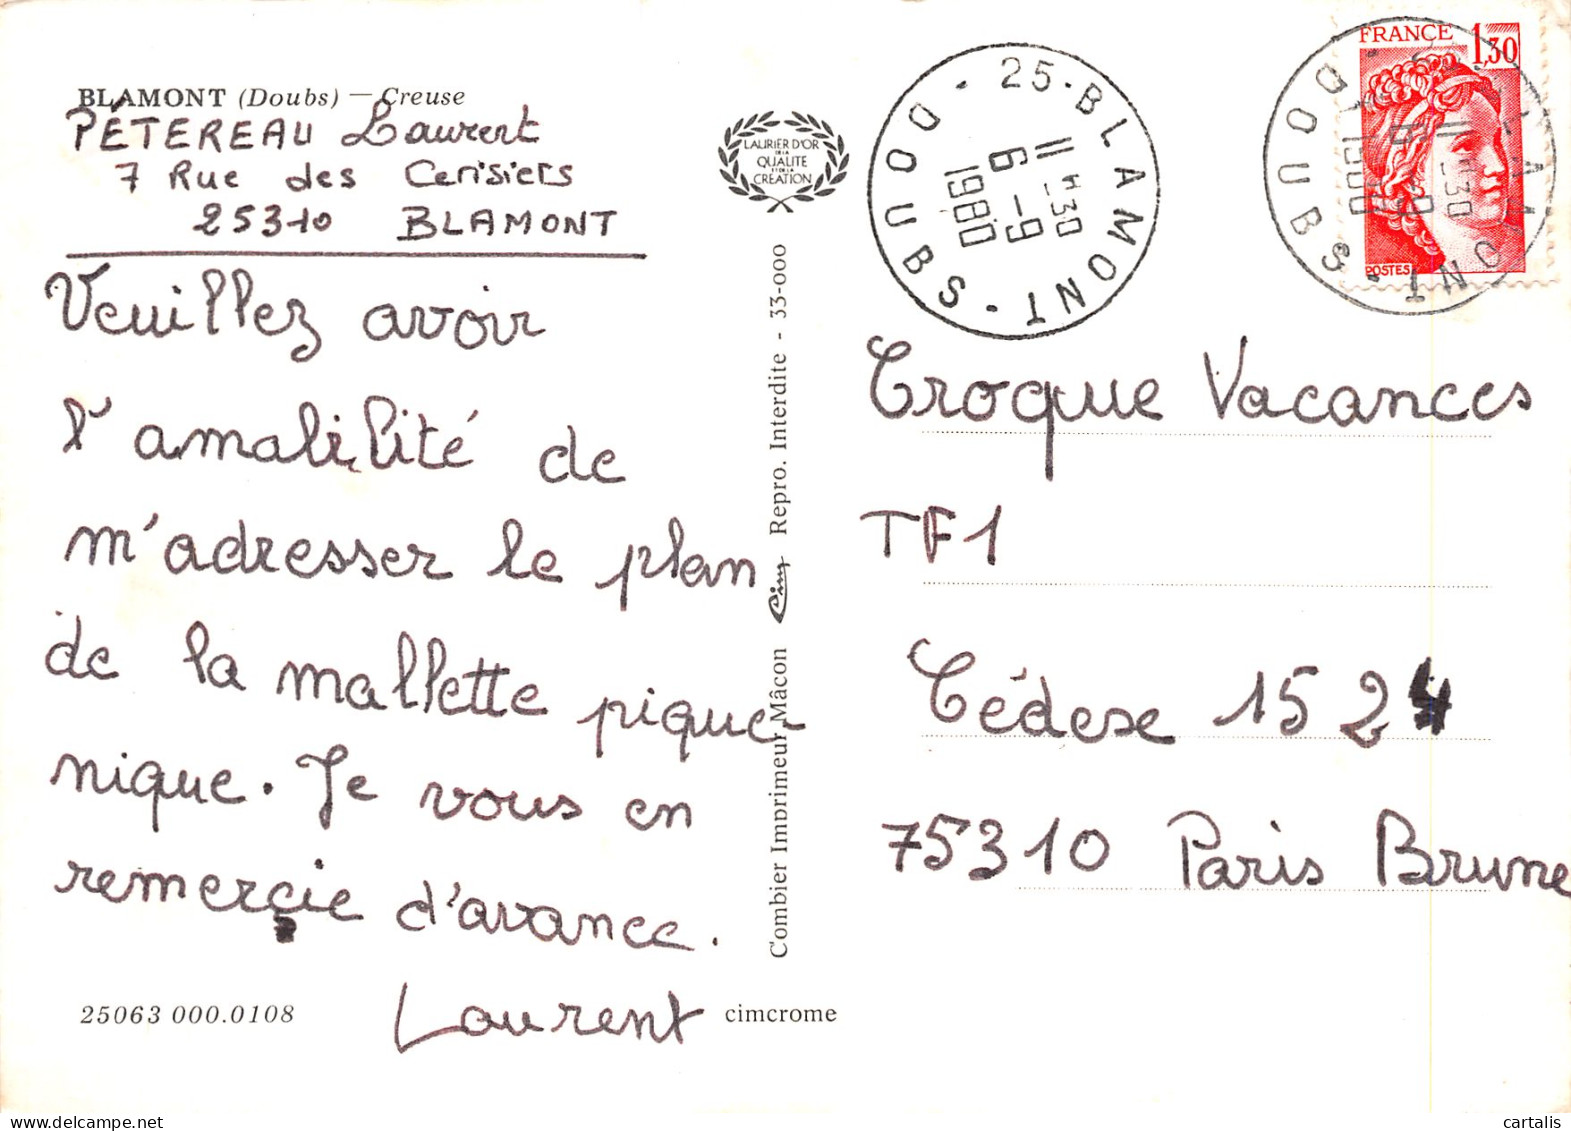 BLAMONT (Doubs) — Creuse
PÉTEREAU Laurent
7 Rue des Cerisiers
25310 BLAMONT
Veuillez avoir
l'amalilité de
m'adresser le plan
de la mallette pique
nique. Je vous en
remerçie d'avance.
Laurent
25063 000.0108
cimcrome
LAURIER D'OR
DE LA
QUALITE
ET DE LA
CREATION
Combier Imprimeur Mâcon Cim Repro. Interdite - 33-000
25-BLAMONT-DOUBS-
11 H 30
6 -9
1980
FRANCE 1,30
POSTES
25-BLAMONT-DOUBS-
11 H 30
6 -9
1980
Croque Vacances
TF1
Cédese 15 24
75310 Paris Brune
cartalis